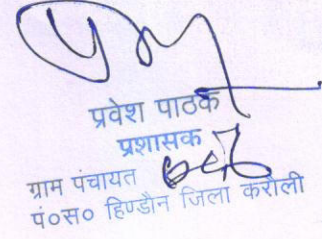 प्रवेश पाठक
प्रशासक
ग्राम पंचायत
पं०स० हिण्डौन जिला करौली